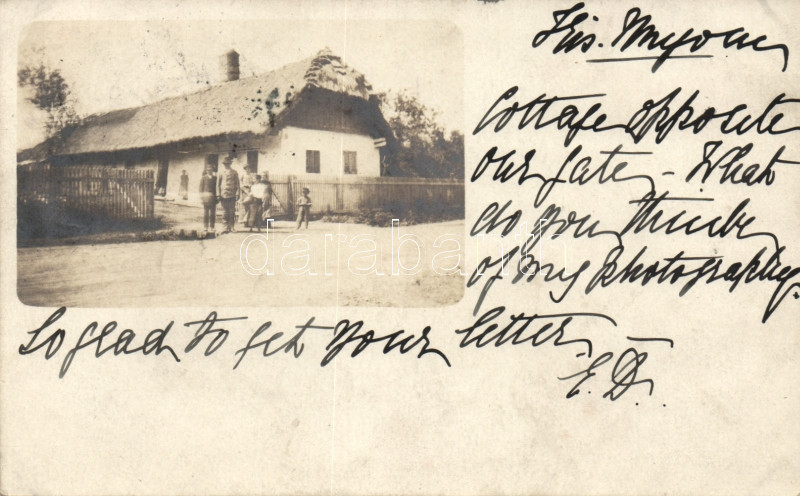 Kis. Unyom
Cottage opposite
our gate – What
do you think
of my photography.
So glad to get your letter –
E. D.
darabanth